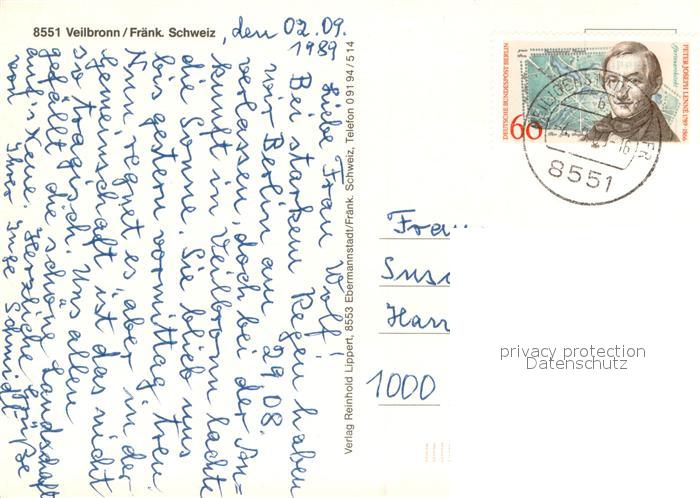 8551 Veilbronn / Fränk. Schweiz
, den 02.09.
1989
Liebe Frau Wolf!
Bei starkem Regen haben
wir Berlin am 29.08.
verlassen, doch bei der An=
kunft in Veilbronn lachte
die Sonne. Sie blieb uns
bis gestern vormittag treu
Nun regnet es, aber in der
Gemeinschaft ist das nicht
so tragisch. Uns allen
gefällt die schöne Landschaft
aufs Neue. Herzliche Grüße
von Ihrer Inge Schmidt
Verlag Reinhold Lippert, 8553 Ebermannstadt/Fränk. Schweiz, Telefon 0 91 94 / 5 14
DEUTSCHE BUNDESPOST BERLIN
60
PETER JOSEPH LENNÉ 1789-1866
8551
Frau
Sus
Han
1000
privacy protection
Datenschutz